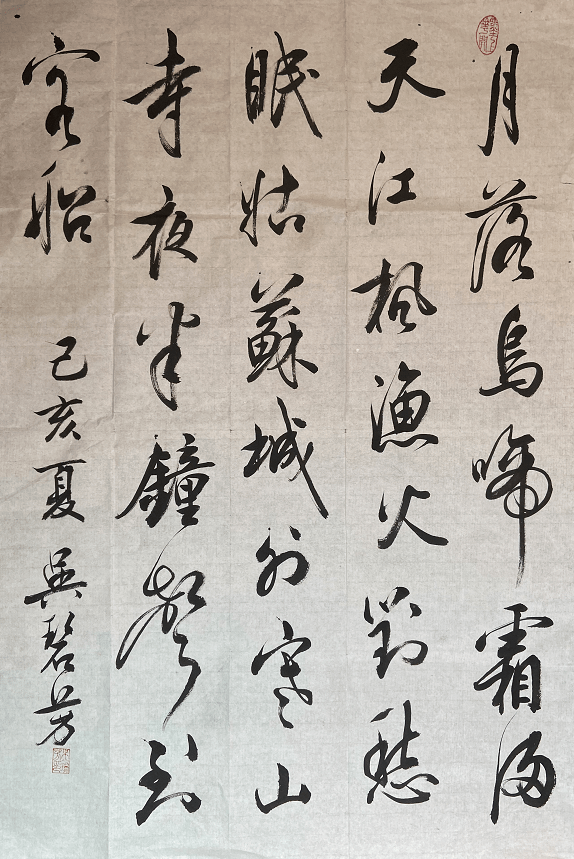 月落烏啼霜滿
天江楓漁火對愁
眠姑蘇城外寒山
寺夜半鐘聲到
客船
己亥夏吳碧芳